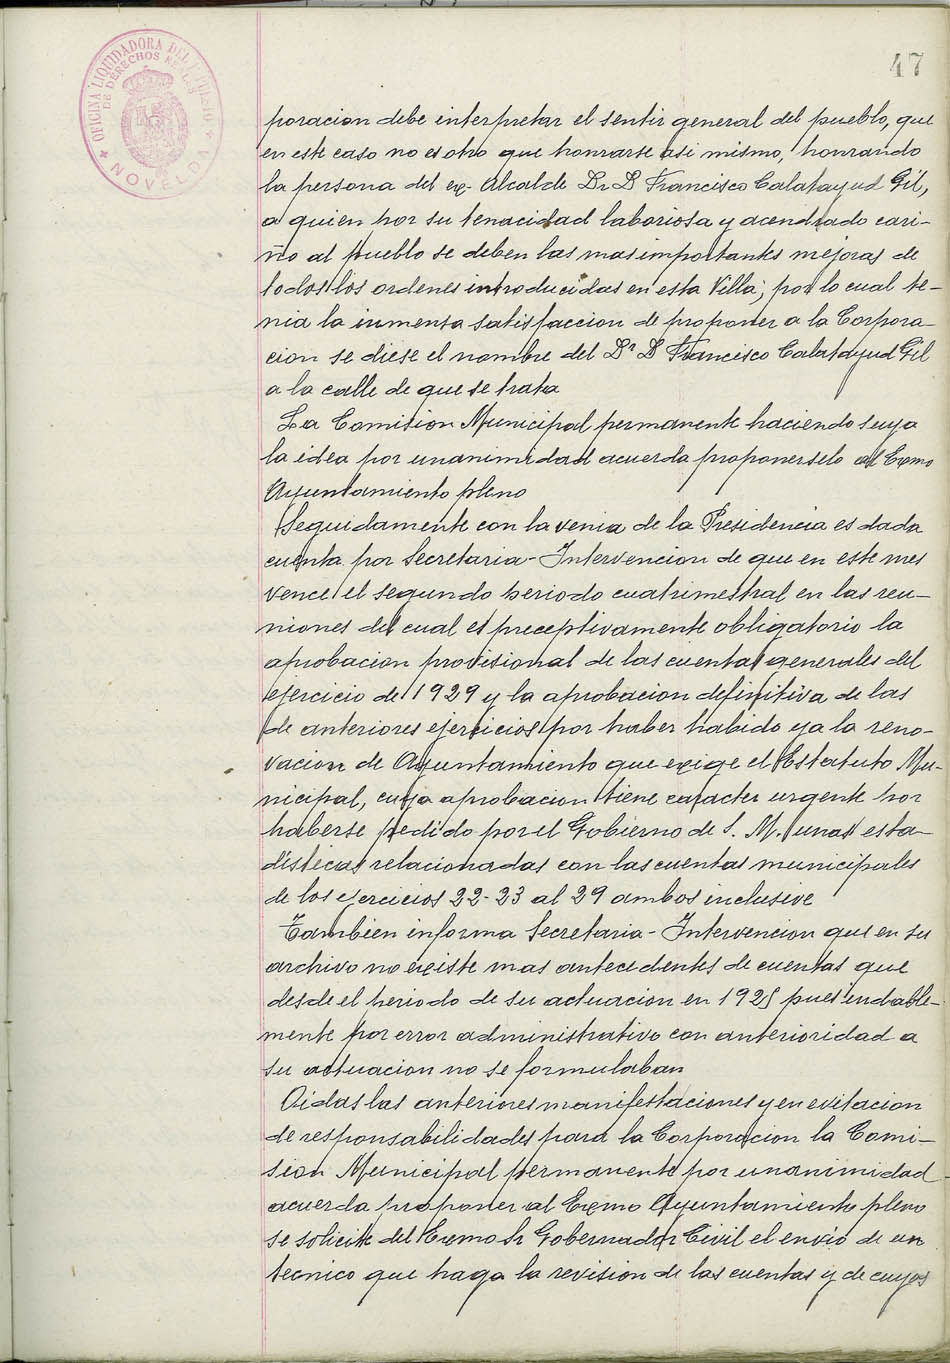 47
OFICINA LIQUIDADORA DEL
DE DERECHOS REALES
NOVELDA
poracion debe interpretar el sentir general del pueblo, que
en este caso no es otro que honrarse asi mismo, honrando
la persona del ex-Alcalde Dr D Francisco Calatayud Gil,
a quien por su tenacidad laboriosa y acendrado cari-
ño al pueblo se deben las mas importantes mejoras de
todos los ordenes introducidas en esta Villa, por lo cual te-
nia la inmensa satisfaccion de proponer a la Corpora-
cion se diese el nombre del Dr D Francisco Calatayud Gil
a la calle de que se trata
La Comision Municipal permanente haciendo suya
la idea por unanimidad acuerda proponerselo al Exmo
Ayuntamiento pleno
Seguidamente con la venia de la Presidencia es dada
cuenta por Secretaria-Intervencion de que en este mes
vence el segundo periodo cuatrimestral en las reu-
niones del cual es preceptivamente obligatorio la
aprobacion provisional de las cuentas generales del
ejercicio de 1929 y la aprobacion definitiva de las
de anteriores ejercicios por haber habido ya la reno-
vacion de Ayuntamiento que exige el Estatuto Mu-
nicipal, cuya aprobacion tiene caracter urgente por
haberse pedido por el Gobierno de S. M. unas esta-
disticas relacionadas con las cuentas municipales
de los ejercicios 22-23 al 29 ambos inclusive
Tambien informa Secretaria-Intervencion que en su
archivo no existe mas antecedentes de cuentas que
desde el periodo de su actuacion en 1925 pues indable-
mente por error administrativo con anterioridad a
su actuacion no se formulaban
Oidas las anteriores manifestaciones y en evitacion
de responsabilidades para la Corporacion la Comi-
sion Municipal permanente por unanimidad
acuerda proponer al Exmo Ayuntamiento pleno
se solicite del Exmo Sr Gobernador Civil el envio de un
tecnico que haga la revision de las cuentas y de cuyos